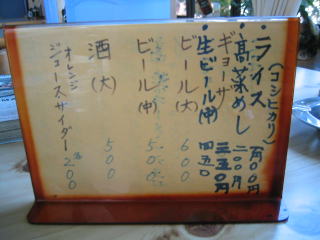 ライス(コシヒカリ) 一〇〇円
高菜めし 二〇〇円
ギョーザ 三五〇円
生ビール(中) 四五〇
ビール(大) 600
ビール(中) 500
酒(大) 500
オレンジ
ジュースサイダー 200